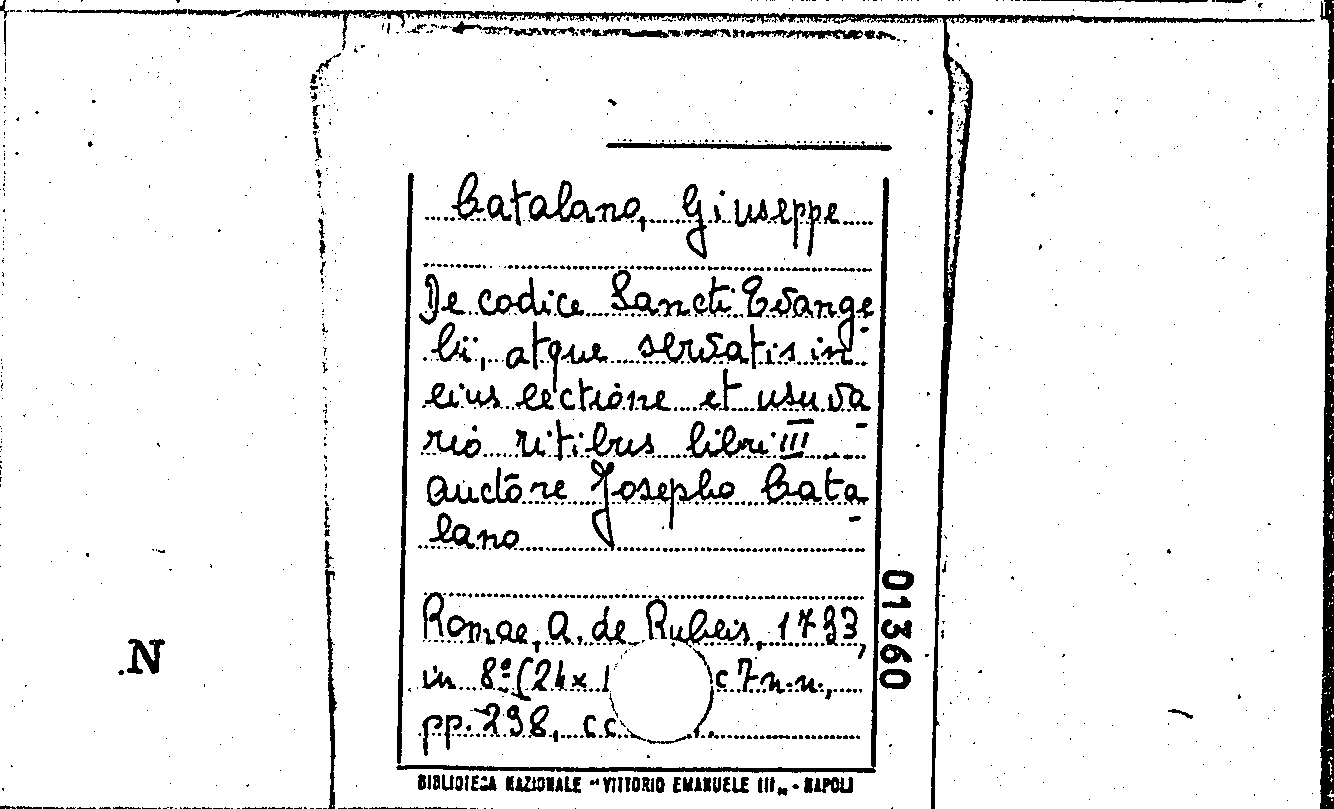 Catalano, Giuseppe
De codice Sancti Evange-
lii, atque servatis in
eius lectione et usu va-
rio ritibus libri III
auctore Josepho Cata-
lano
Romae, A. de Rubeis, 1733,
in 8º (24x 1 c 7 n.n.,
pp. 298, cc
BIBLIOTECA NAZIONALE "VITTORIO EMANUELE III" - NAPOLI
01360
N